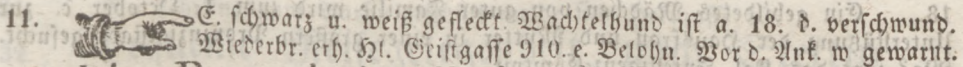 11. E. schwarz u. weiß gefleckt. Wachtelhund ist a. 18. d. verschwund.
Wiederbr. erh. Hl. Geistgasse 910. e. Belohn. Vor d. Ank. w gewarnt.